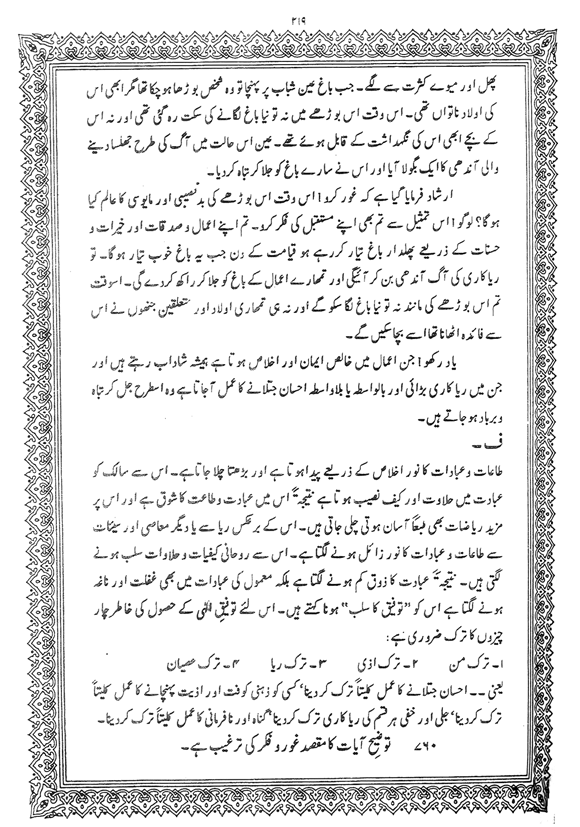 ۳۱۹
پھل اور میوے کثرت سے لگے۔ جب باغ عین شباب پر پہنچا تو وہ شخص بوڑھا ہو چکا تھا مگر ابھی اس
کی اولاد ناتواں تھی۔ اس وقت اس بوڑھے میں نہ تو نیا باغ لگانے کی سکت رہ گئی تھی اور نہ اس
کے بچے ابھی اس کی نگہداشت کے قابل ہوئے تھے۔ عین اس حالت میں آگ کی طرح جھلسا دینے
والی آندھی کا ایک بگولا آیا اور اس نے سارے باغ کو جلا کر تباہ کر دیا۔
ارشاد فرمایا گیا ہے کہ غور کرو! اس وقت اس بوڑھے کی بدنصیبی اور مایوسی کا عالم کیا
ہو گا؟ لوگو! اس تمثیل سے تم بھی اپنے مستقبل کی فکر کرو۔ تم اپنے اعمال و صدقات اور خیرات و
حسنات کے ذریعے پھلدار باغ تیار کر رہے ہو قیامت کے دن جب یہ باغ خوب تیار ہو گا۔ تو
ریاکاری کی آگ آندھی بن کر آئیگی اور تمھارے اعمال کے باغ کو جلا کر راکھ کر دے گی۔ اسوقت
تم اس بوڑھے کی مانند نہ تو نیا باغ لگا سکو گے اور نہ ہی تمھاری اولاد اور متعلقین جنھوں نے اس
سے فائدہ اٹھانا تھا اسے بچا سکیں گے۔
یاد رکھو! جن اعمال میں خالص ایمان اور اخلاص ہوتا ہے ہمیشہ شاداب رہتے ہیں اور
جن میں ریاکاری بڑائی اور بالواسطہ یا بلاواسطہ احسان جتلانے کا عمل آ جاتا ہے وہ اسطرح جل کر تباہ
و برباد ہو جاتے ہیں۔
ف ۔
طاعات و عبادات کا نور اخلاص کے ذریعے پیدا ہوتا ہے اور بڑھتا چلا جاتا ہے۔ اس سے سالک کو
عبادت میں حلاوت اور کیف نصیب ہوتا ہے نتیجۃً اس میں عبادت و طاعت کا شوق ہے اور اس پر
مزید ریاضات بھی طبعاً آسان ہوتی چلی جاتی ہیں۔ اس کے برعکس ریا سے یا دیگر معاصی اور سیئات
سے طاعات و عبادات کا نور زائل ہونے لگتا ہے۔ اس سے روحانی کیفیات و حلاوات سلب ہونے
لگتی ہیں۔ نتیجۃً عبادت کا ذوق کم ہونے لگتا ہے بلکہ معمول کی عبادات میں بھی غفلت اور ناغہ
ہونے لگتا ہے اس کو "توفیق کا سلب" ہونا کہتے ہیں۔ اس لئے توفیق الٰہی کے حصول کی خاطر چار
چیزوں کا ترک ضروری ہے:
۱۔ ترک من ۲۔ ترک اذی ۳۔ ترک ریا ۴۔ ترک عصیان
یعنی ۔۔ احسان جتلانے کا عمل کلیتاً ترک کر دینا، کسی کو ذہنی کوفت اور اذیت پہنچانے کا عمل کلیتاً
ترک کر دینا، جلی اور خفی ہر قسم کی ریاکاری ترک کر دینا، گناہ اور نافرمانی کا عمل کلیتاً ترک کر دینا۔
۷۶۰ توضیح آیات کا مقصد غور و فکر کی ترغیب ہے۔